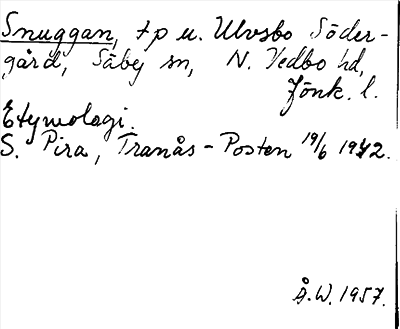 Snuggan, tp u. Ulvsbo Söder-
gård, Säby sn, N. Vedbo hd,
Jönk. l.
Etymologi.
S. Pira, Tranås-Posten 19/6 1942.
Å.W. 1957.